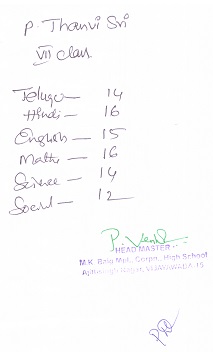 P. Thanvi Sri
VII Class
Telugu — 14
Hindi — 16
English — 15
Maths — 16
Science — 14
Social — 12
HEAD MASTER
M.K. Baig Mpl. Corpn. High School
Nagar, VIJAYAWADA-15